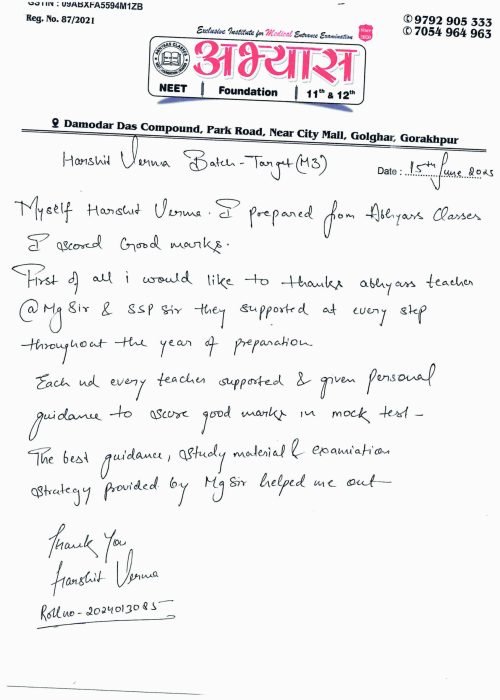 GSTIN : 09ABXFA5594M1ZB
Reg. No. 87/2021
✆ 9792 905 333
✆ 7054 964 963
Exclusive Institute for Medical Entrance Examination
अभ्यास
NEET | Foundation | 11th & 12th
Damodar Das Compound, Park Road, Near City Mall, Golghar, Gorakhpur
Harshit Verma Batch - Target (M3)
Date : 15th June 2025
Myself Harshit Verma. I prepared from Abhyass Classes
I scored Good marks.
First of all i would like to thanks abhyass teacher
@ Mg Sir & SSP Sir they supported at every step
throughout the year of preparation
Each nd every teacher supported & given Personal
guidance to score good marks in mock test -
The best guidance, study material & examiation
strategy provided by Mg Sir helped me out
Thank You
Harshit Verma
Roll no - 2024013085